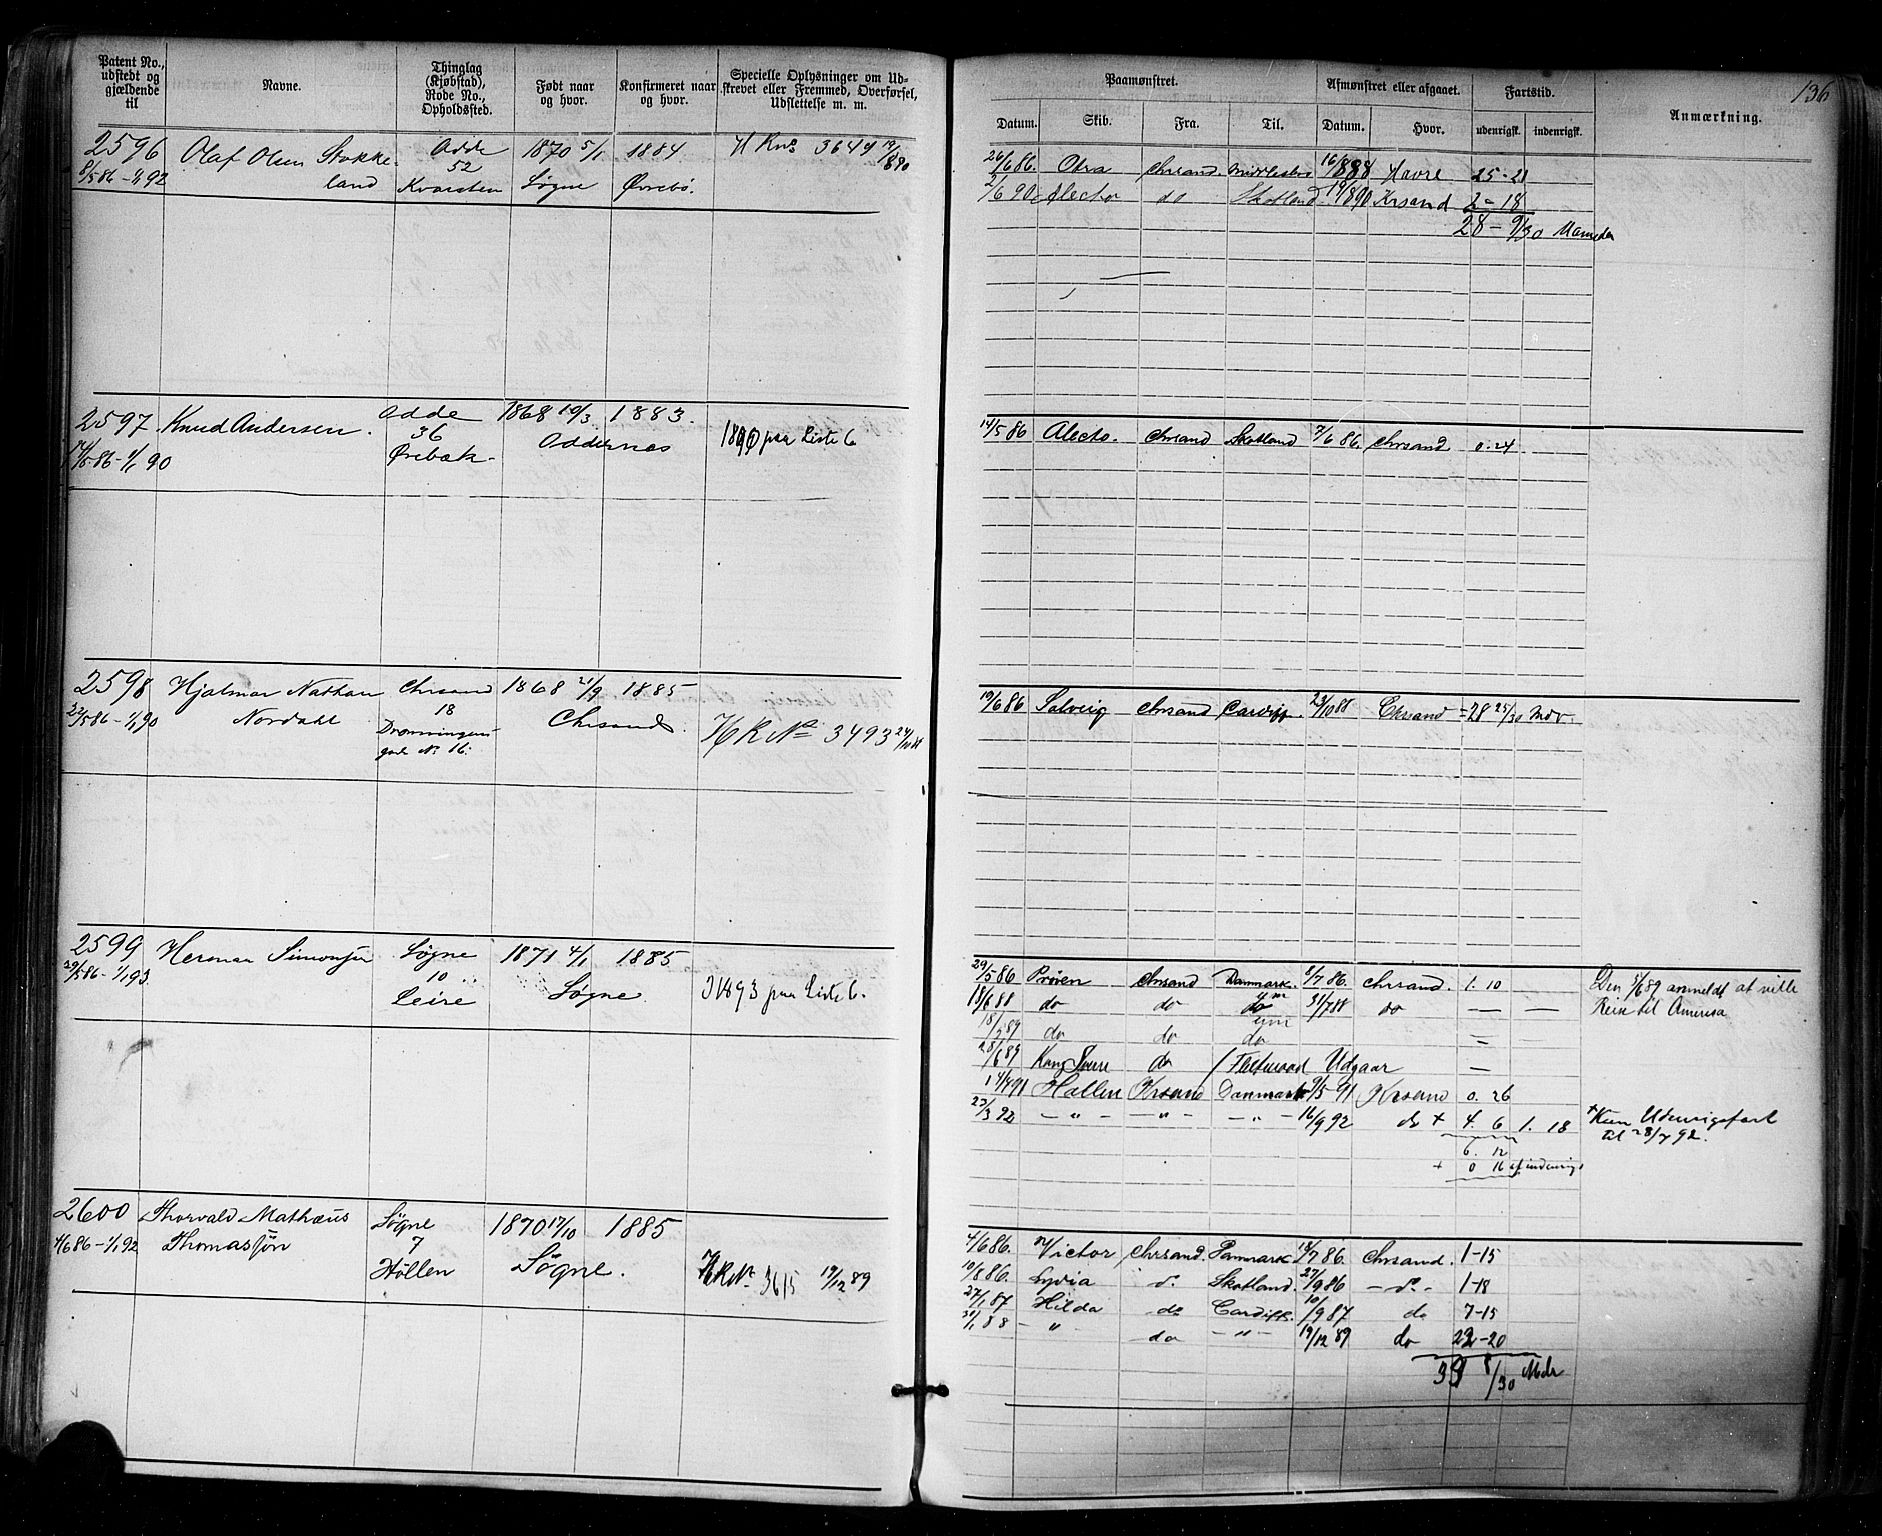 136
Patent No., udstedt og gjældende til
Navne.
Thinglag (Kjøbstad), Rode No., Opholdssted.
Født naar og hvor.
Konfirmeret naar og hvor.
Specielle Oplysninger om Udstrevet eller Fremmed, Overførsel, Udslettelse m. m.
Paamønstret.
Afmønstret eller afgaaet.
Fartstid.
Anmærkning.
Datum. Skib. Fra. Til. Datum. Hvor. udenrigsk. indenrigsk.
2596 Olaf Olsen Stokke- Odde 1870 5/1 1884 H R No 3649 19/8 90
6/5 86 - 1/1 92 land 52
Kvarsten Søgne Øvrebø.
26/6 86. Otra Chrsand. Middlesbro 16/8 88 Havre 25-21
2/6 90 Alecto do Skotland 19/8 90 Krsand 2-18
28 - 9/30 Maaneder
2597 Knud Andersen. Odde 1868 19/3 1883.
14/5 86 - 1/1 90 36 Oddernes 1890 paa Liste 6
Ørebæk.
14/5 86 Alecto. Chrsand Skotland 7/6 86. Chrsand 0. 24
2598 Hjalmar Nathan Chrsand 1868 21/9 1885
22/5 86 - 1/1 90 Nordahl 18 Chrsand.
Dronningens
gade No 16. H R No 3493 24/10 88
19/6 86 Solveig Chrsand Cardiff. 23/10 88 Chrsand = 28 25/30 Mdr.
2599 Herman Simonsen Søgne 1871 4/1 1885
29/5 86 - 1/1 93 10 Søgne
Leire 1893 paa Liste 6.
29/5 86 Prøven Chrsand Danmark. 8/7 86. Chrsand. 1. 10 Den 5/6 89 anmeldt at ville
18/6 88 do do do 31/7 88 do — — Reise til Amerika
18/5 89 do do do
28/6 89 Kong Sverre do Fleetwood Udgaar —
14/4 91 Hallen Krsand Danmark 9/5 91 Krsand 0. 26
23/3 92 - " - - " - - " - 16/9 92 do + 4. 6 1. 18 + Kun Udenrigsfart
til 28/7 92.
6. 12
+ 0 16 af indenrigs
2600 Thorvald Mathæus Søgne 1870 17/10 1885
4/6 86 - 1/1 92 Thomassøn 7 Søgne.
Høllen H R No 3615 19/12 89
4/6 86. Victor Chrsand. Danmark 18/7 86. Chrsand. 1-15
10/8 86. Lydia do Skotland. 27/9 86 - do - 1-18
27/1 87 Hilda do Cardiff. 10/9 87 do 7-15
31/1 88 - " - do - " - 19/12 89 do 22-20
33 8/30 Mdr